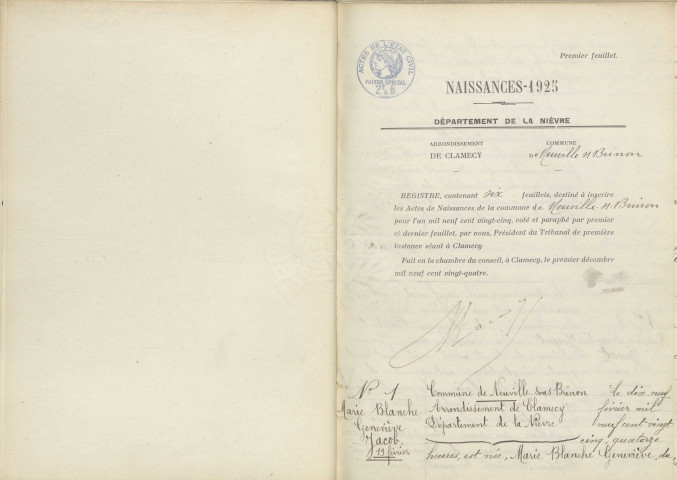 Premier feuillet.
ACTES DE L'ETAT CIVIL
PAPIER SPÉCIAL
NAISSANCES-1925
DÉPARTEMENT DE LA NIÈVRE
ARRONDISSEMENT
DE CLAMECY
COMMUNE
DE Neuville s/s Brinon
REGISTRE, contenant six feuillets, destiné à inscrire
les Actes de Naissances de la commune de Neuville s/s Brinon
pour l'an mil neuf cent vingt-cinq, coté et paraphé par premier
et dernier feuillet, par nous, Président du Tribunal de première
instance séant à Clamecy
Fait en la chambre du conseil, à Clamecy, le premier décembre
mil neuf cent vingt-quatre.
N° 1
Marie Blanche
Geneviève
Jacob
19 février
Commune de Neuville sous Brinon
Arrondissement de Clamecy
Département de la Nièvre
Le dix neuf
février mil
neuf cent vingt
cinq, quatorze
heures, est née, Marie Blanche Geneviève, du